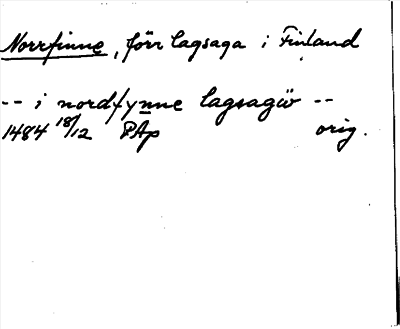 Norrfinne, förr lagsaga i Finland
-- i nordfynne lagsagw --
1484 18/12 PAp orig.